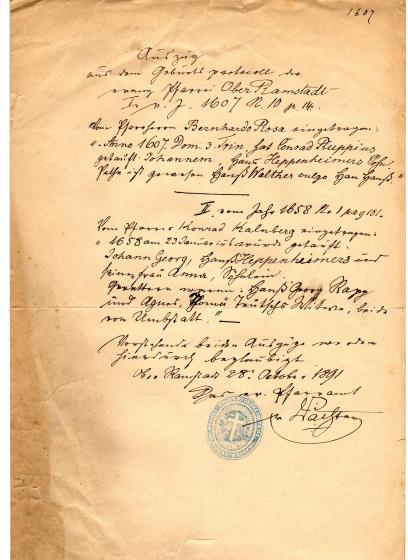 1607
Auszug
aus dem Geburtsprotocoll der
evang Pfarrei Ober Ramstadt
I. v. J. 1607 N. 10 p. 14.
Vom Pfarrherrn Bernhardo Rosa eingetragen:
"Anno 1607. Dom. 3. Trin. hat Conrad Ruppius
getauft Johannem, Hans Heppenheimers Sohn
Pathe ist gewesen Hanß Walther vulgo Han Hanß."
II. vom Jahr 1658 No 1 pag 131.
Vom Pfarrer Konrad Kalnberg eingetragen:
"1658 am 23 Januarius wurde getauft:
Johann Georg, Hanß Heppenheimers und
seiner frau Anna, Söhnlein.
Gevattern waren: Hanß Georg Rapp
und Agnes, Thomä Trütschs Witwe, beide
von Umbstatt." —
Vorstehende beiden Auszüge werden
hierdurch beglaubigt
Ober Ramstadt 28. October 1891
Das ev. Pfarramt